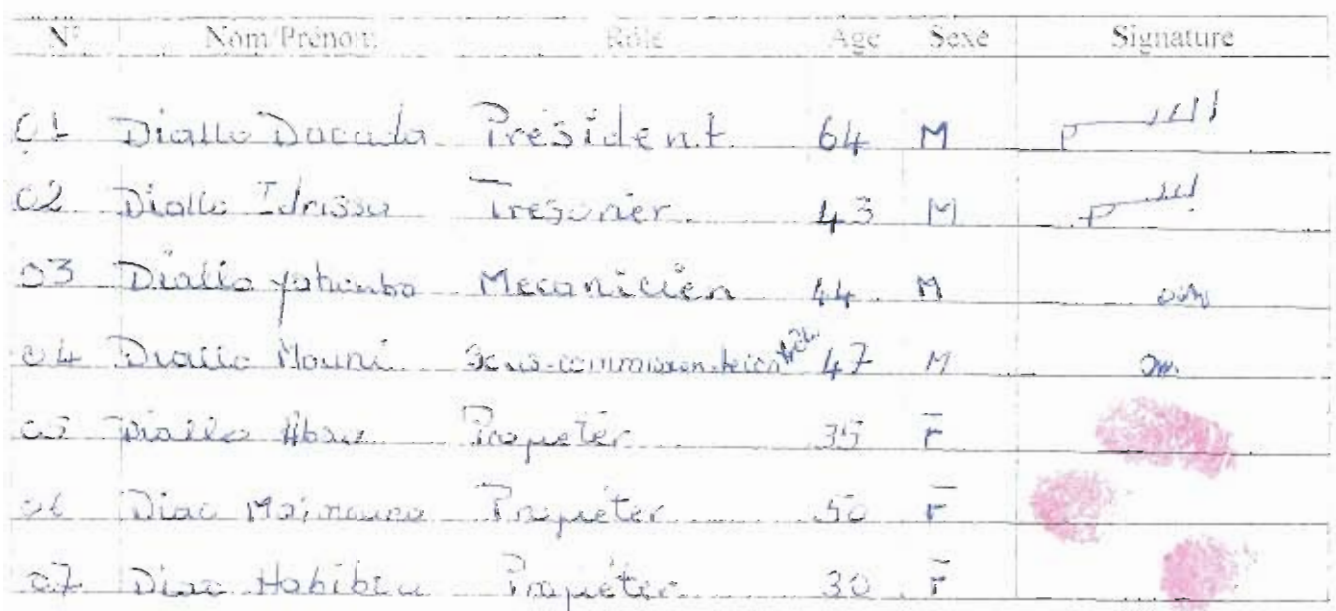 N° Nom/Prénom Rôle Age Sexe Signature
01 Diallo Daouda Président 64 M
02 Diallo Idrissa Tresorier 43 M
03 Diallo Mecanicien 44 M
04 Diallo Mouni Sous-commission 47 M
05 Diallo Propreter 35 F
06 Diao Maimouna Propreter 50 F
07 Diao Habibou Propreter 30 F